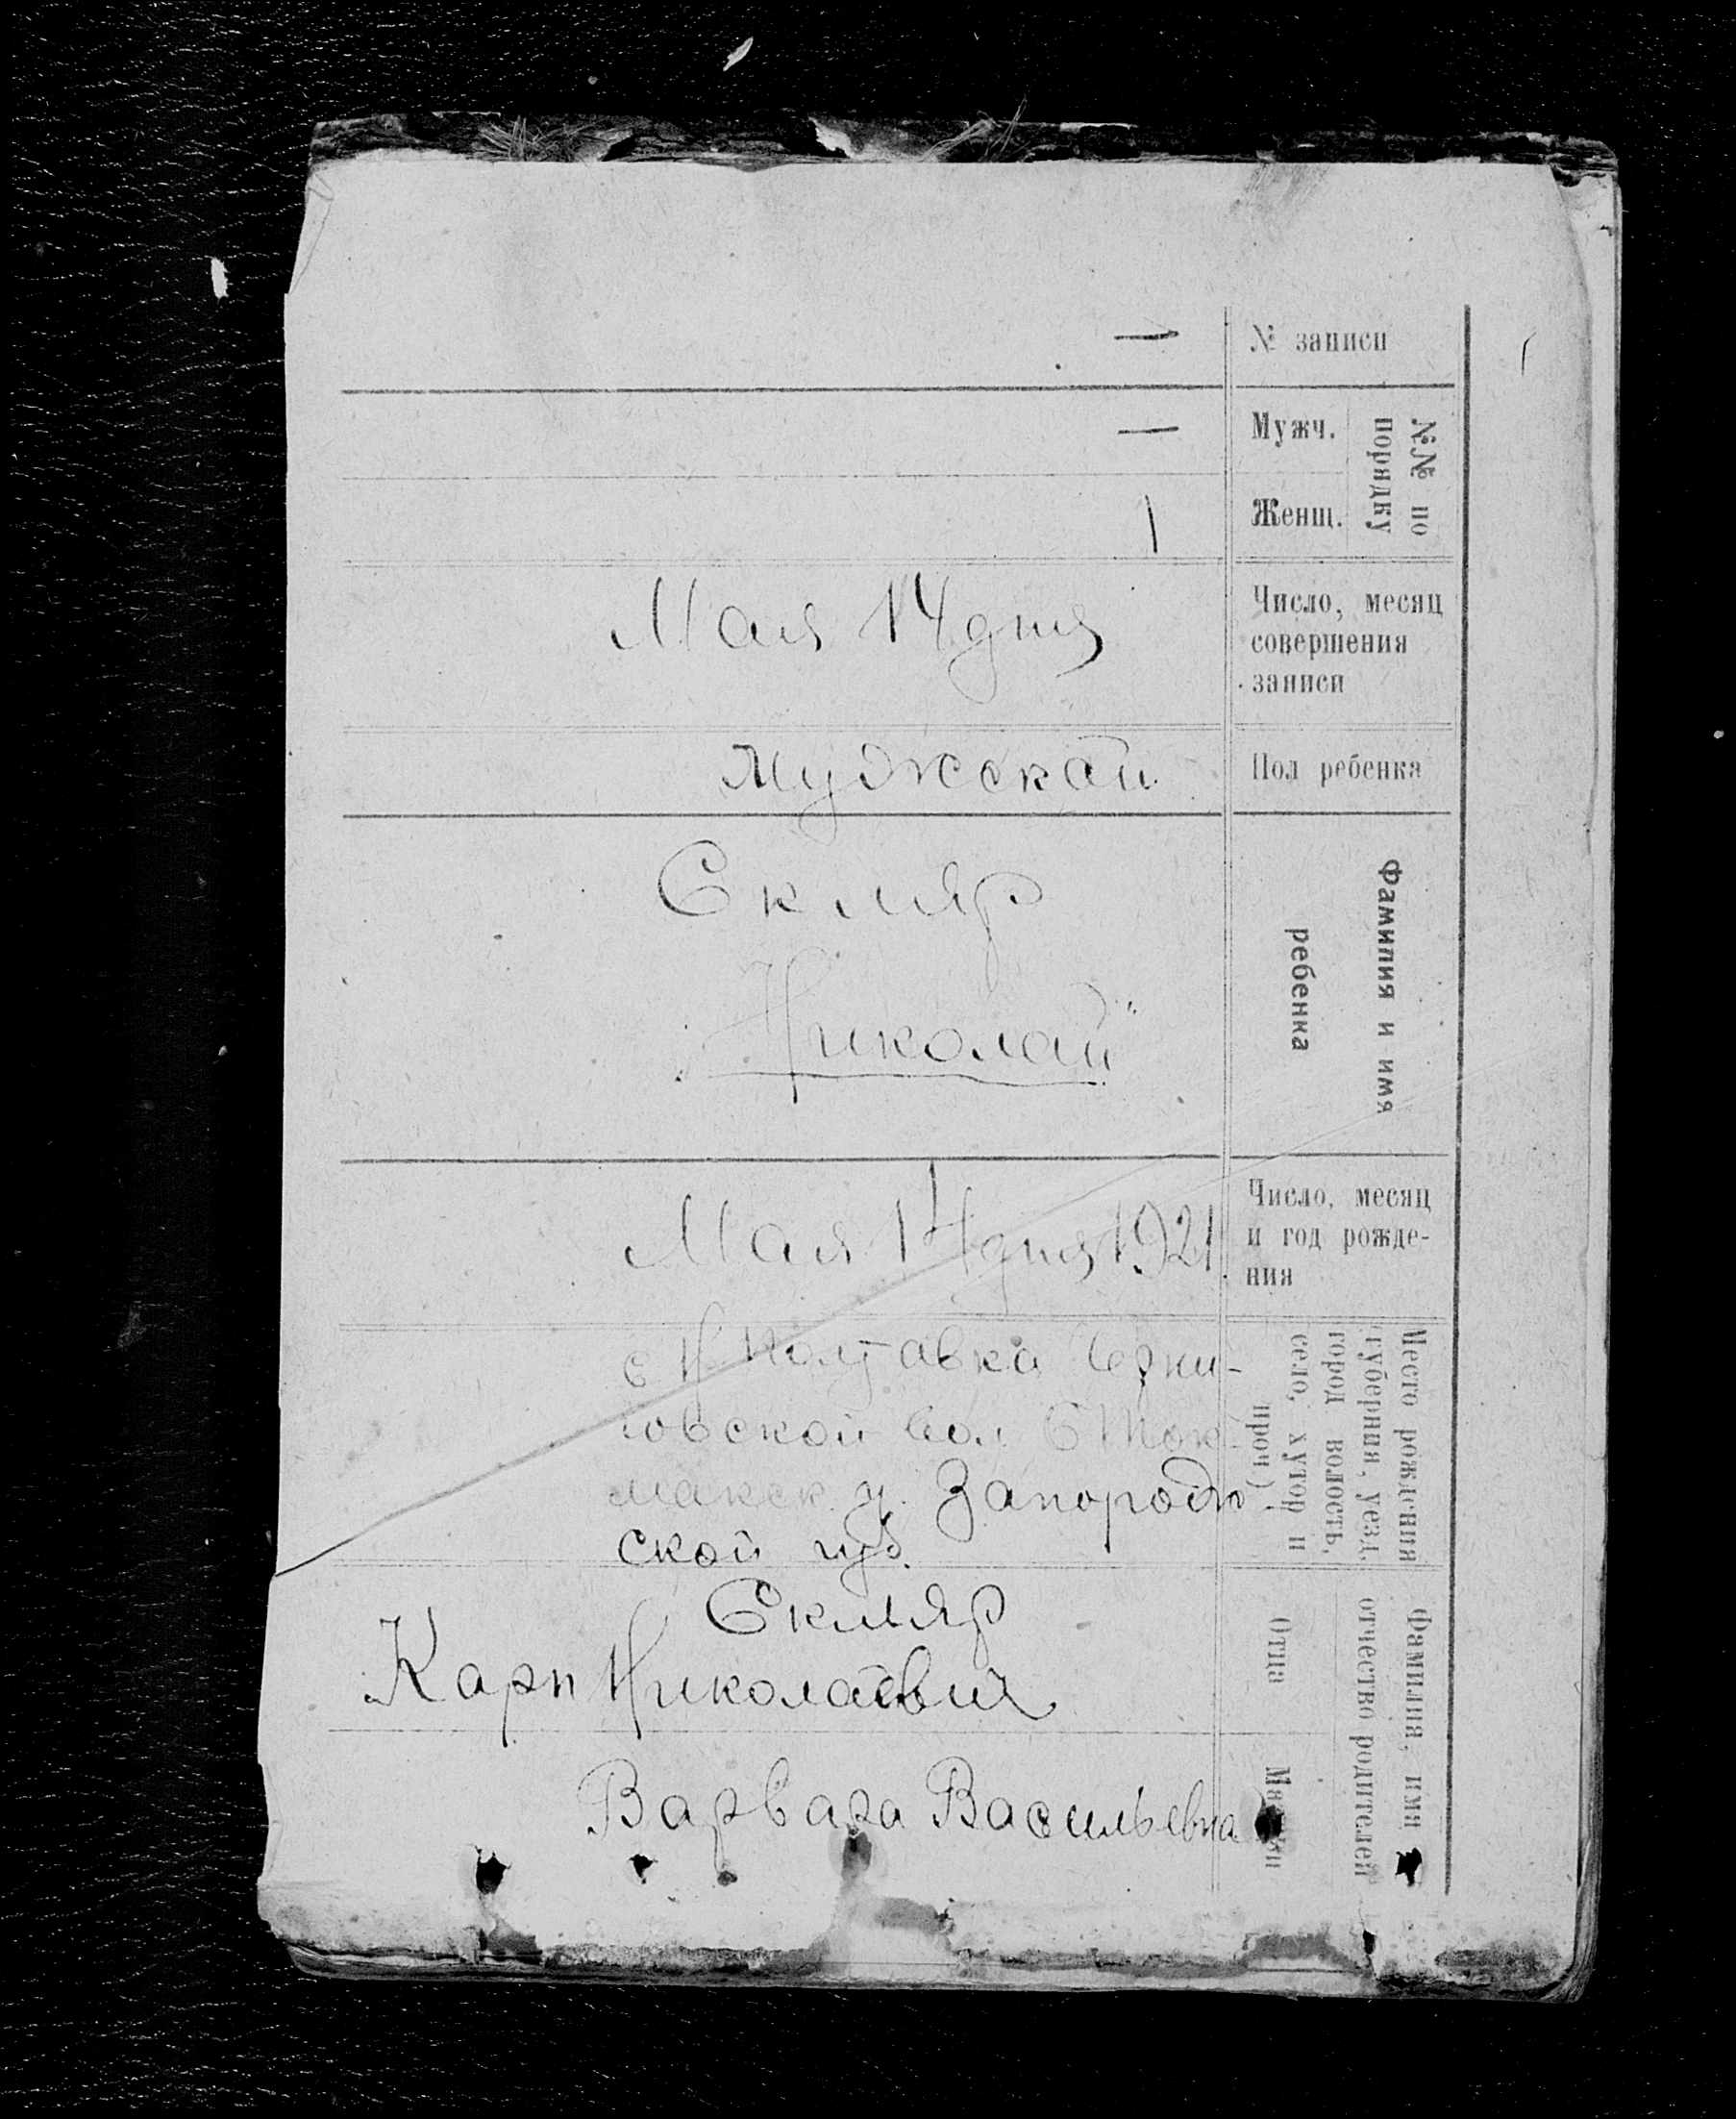 1
№ записи
—
№№ по
порядку
Мужч.
—
Женщ.
1
Число, месяц
совершения
записи
Мая 14 дня
Пол ребенка
Мужской
Фамилия и имя
ребенка
Скляр
„Николай"
Число, месяц
и год рожде-
ния
Мая 14 дня 1921
Место рождения
(губерния, уезд,
город волость,
село, хутор и
проч.)
с Н Полтавка Черни-
говской вол. Б Ток-
макск. у. Запорож-
ской губ.
Фамилия, имя
отчество родителей
Отца
Скляр
Карп Николаевич
Варвара Васильевна